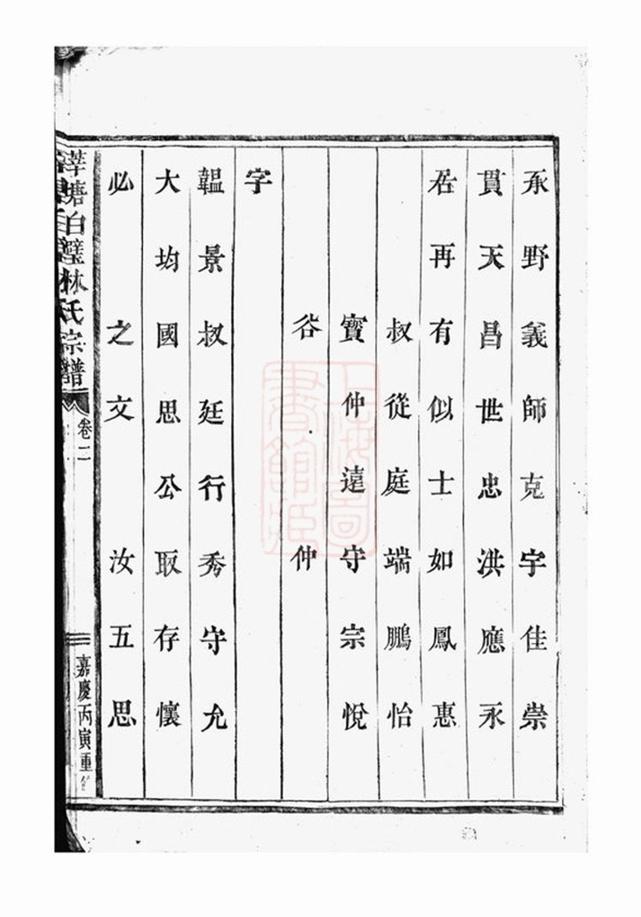 承野義師克宇佳崇
貫天昌世忠洪應永
君再有似士如鳳惠
叔從庭端鵬怡
寳仲遠守宗悅
谷仲
字
韞景叔廷行秀守允
大均國思公取存懷
必之文汝五思
莘塘白璧林氏宗譜
卷二
嘉慶丙寅重
上海圖書館藏